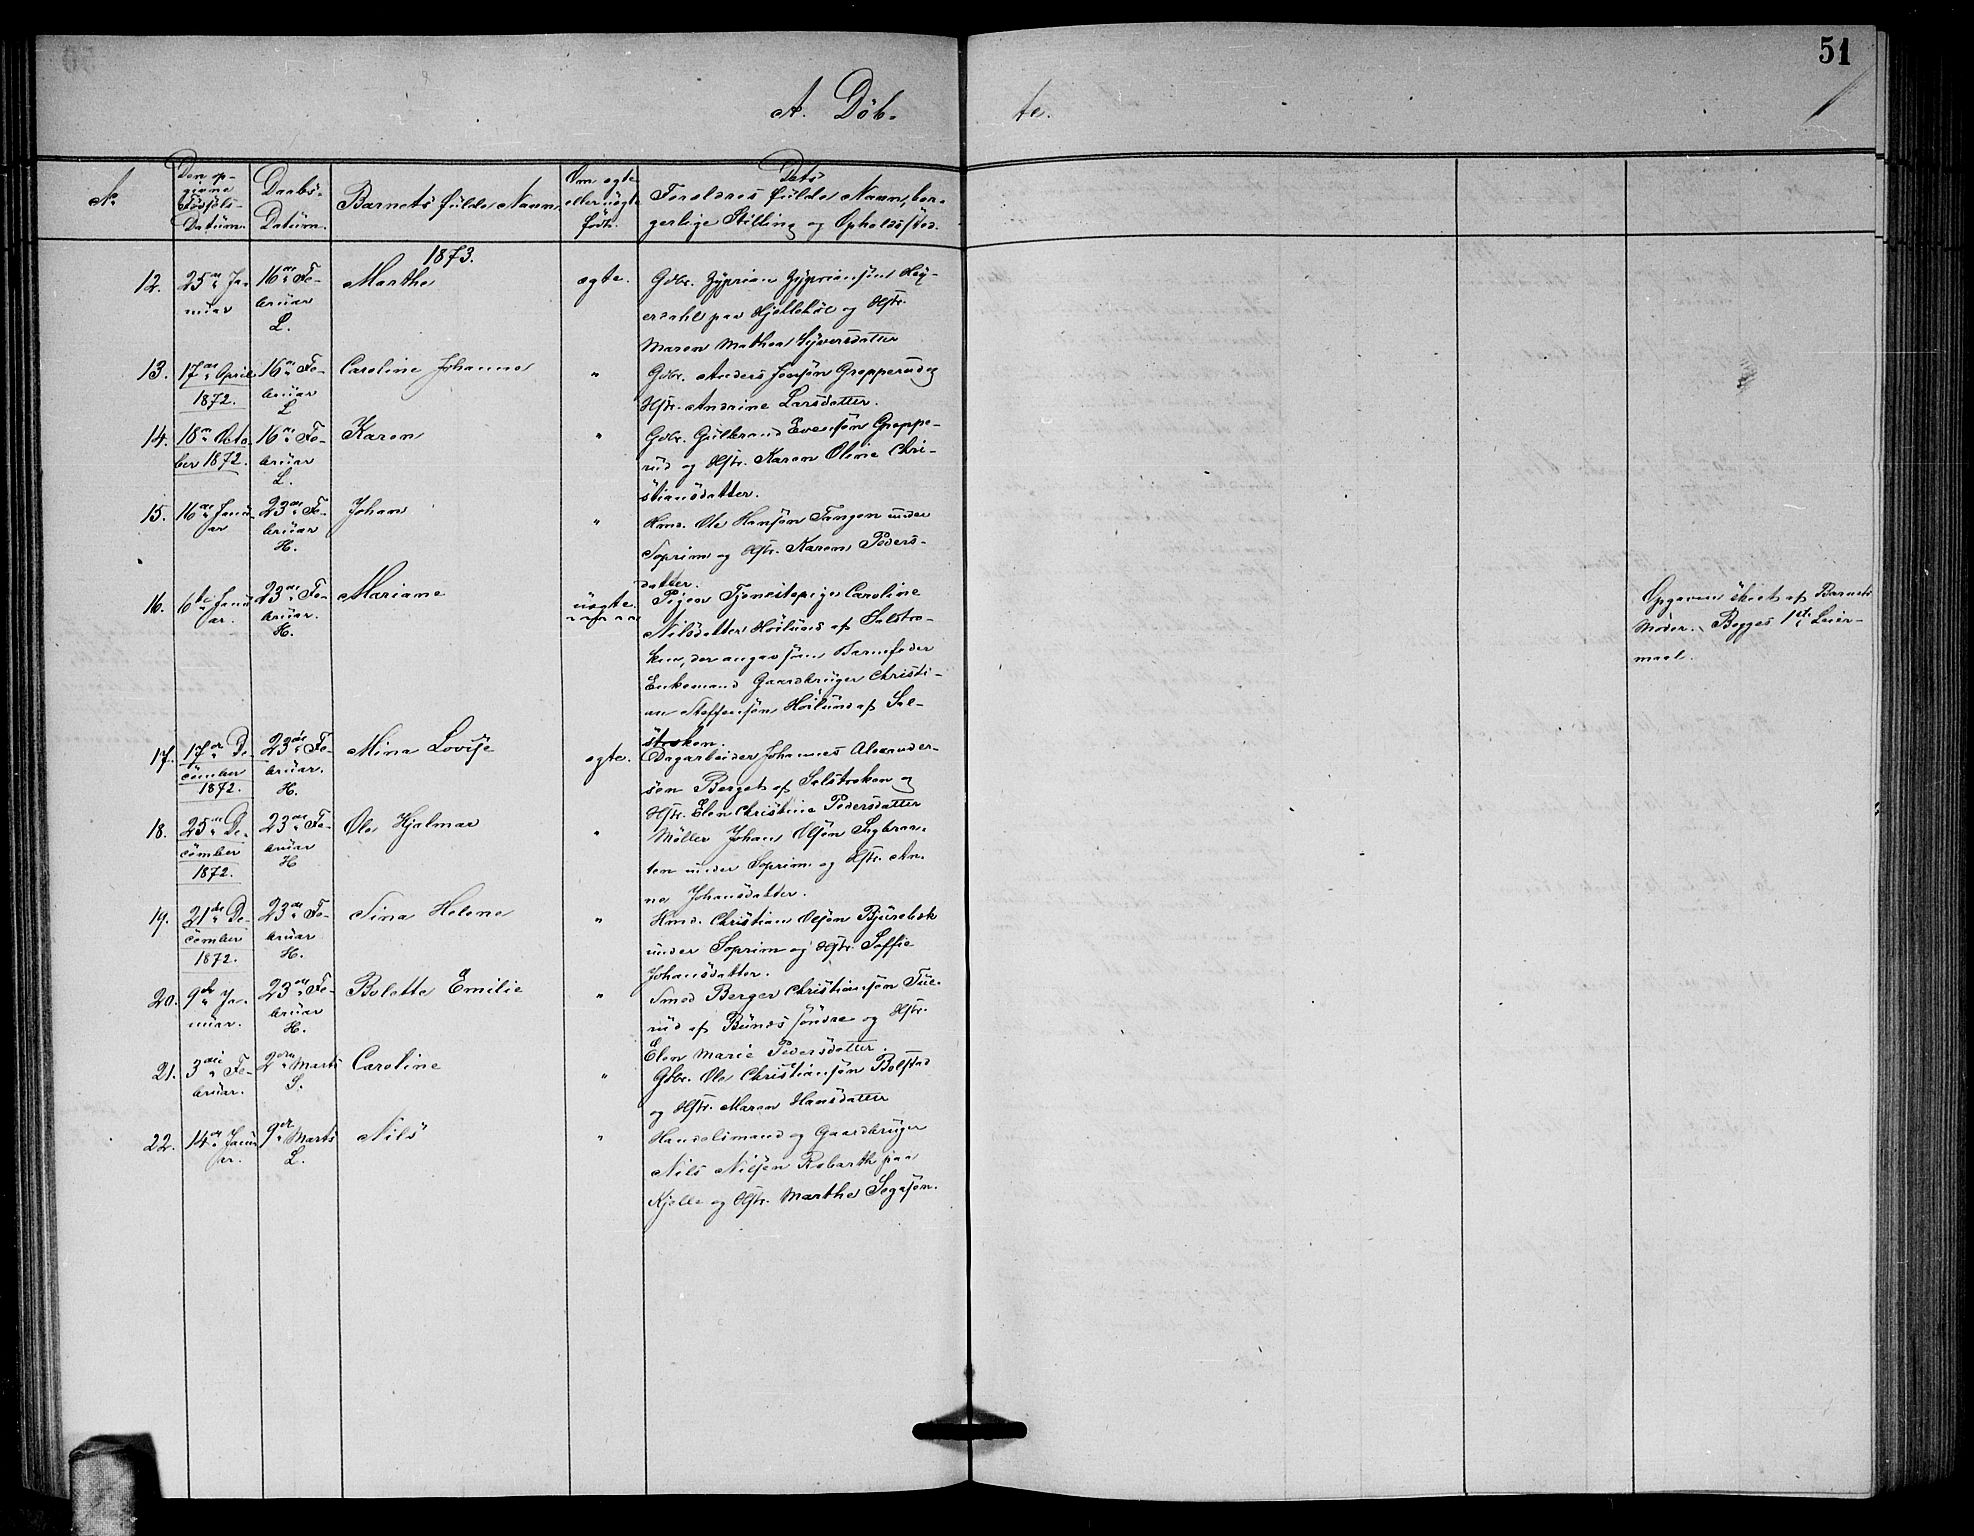 51
A. Döb- te.
No
Den op-
givne
Födsels-
Datum.
Daabs-
Datum.
Barnets fulde Navn.
Om ægte
eller uægte
födt.
Dets
Forældres fulde Navn, bor-
gerlige Stilling og Opholdssted.
1873.
12. 25de Ja-
nuar
16de Fe-
bruar
L.
Marthe
ægte.
Gdbr. Zyprian Zypriansön Hey-
erdahl paa Hjellebøl og Hstr.
Maren Mathea Syversdatter
13. 17de April
1872.
16de Fe-
bruar
L
Caroline Johanne
"
Gdbr. Anders Jensön Grepperud og
Hstr. Andrine Larsdatter.
14. 18de Octo-
ber 1872.
16de Fe-
bruar
L.
Karen
"
Gdbr. Gulbrand Evensön Greppe-
rud og Hstr. Karen Oline Chri-
stiansdatter.
15. 16de Janu-
ar
23de Fe-
bruar
H.
Johan
"
Hmd. Ole Hansön Tangen under
Soprim og Hstr. Karen Peders-
datter.
16. 6te Janu-
ar.
23de Fe-
bruar.
H.
Mariane
uægte.
Pigen Tjenestepige Caroline
Nilsdatter Höilund af Solstro-
ken, der angav som Barnefader
Enkemand Gaardbruger Christi-
an Steffensön Höilund af Sol-
stroken.
Opgaven skeet af Barnets
Moder. Begges 1ste Leier-
maal.
17. 17de De-
cember
1872.
23de Fe-
bruar.
H.
Mina Lovise
ægte.
Dagarbeider Johannes Alexander-
sön Berget af Solstroken og
Hstr. Elen Christine Pedersdatter
18. 25de De-
cember
1872.
23de Fe-
bruar
H
Ole Hjalmar
"
Möller Johan Olsön Sagbraa-
ten under Soprim og Hstr. An-
ne Johansdatter.
19. 21de De-
cember
1872.
23de Fe-
bruar
H.
Sina Helene
"
Hmd. Christian Olsön Bjurebæk
under Soprim og Hstr. Soffie
Johansdatter.
20. 9de Ja-
nuar.
23de Fe-
bruar
H.
Bolette Emilie
"
Smed Berger Christiansön Tue-
rud af Bunæs söndre og Hstr.
Elen Marie Pedersdatter.
21. 3die Fe-
bruar.
2den Marts
S.
Caroline
"
Gdbr. Ole Christiansön Bolstad
og Hstr. Maren Hansdatter
22. 14de Janu-
ar.
9de Marts
L.
Nils
"
Handelsmand og Gaardbruger
Nils Nilsen Robarth paa
Kjelle og Hstr. Marthe Segasön.